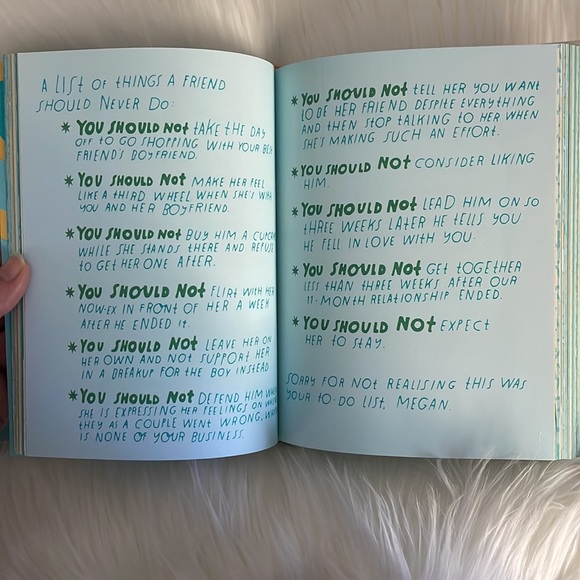 A LIST OF THINGS A FRIEND
SHOULD NEVER DO:
* YOU SHOULD NOT TAKE THE DAY
OFF TO GO SHOPPING WITH YOUR BEST
FRIEND'S BOYFRIEND.
* YOU SHOULD NOT MAKE HER FEEL
LIKE A THIRD WHEEL WHEN SHE'S WITH
YOU AND HER BOYFRIEND.
* YOU SHOULD NOT BUY HIM A CUPCAKE
WHILE SHE STANDS THERE AND REFUSE
TO GET HER ONE AFTER.
* YOU SHOULD NOT FLIRT WITH HER
NOW-EX IN FRONT OF HER A WEEK
AFTER HE ENDED IT.
* YOU SHOULD NOT LEAVE HER ON
HER OWN AND NOT SUPPORT HER
IN A BREAKUP FOR THE BOY INSTEAD.
* YOU SHOULD NOT DEFEND HIM WHEN
SHE IS EXPRESSING HER FEELINGS ON WHERE
THEY AS A COUPLE WENT WRONG,
IS NONE OF YOUR BUSINESS.
* YOU SHOULD NOT TELL HER YOU WANT
TO BE HER FRIEND DESPITE EVERYTHING
AND THEN STOP TALKING TO HER WHEN
SHE'S MAKING SUCH AN EFFORT.
* YOU SHOULD NOT CONSIDER LIKING
HIM.
* YOU SHOULD NOT LEAD HIM ON SO
THREE WEEKS LATER HE TELLS YOU
HE FELL IN LOVE WITH YOU.
* YOU SHOULD NOT GET TOGETHER
LESS THAN THREE WEEKS AFTER OUR
11-MONTH RELATIONSHIP ENDED.
* YOU SHOULD NOT EXPECT
HER TO STAY.
SORRY FOR NOT REALISING THIS WAS
YOUR TO-DO LIST, MEGAN.